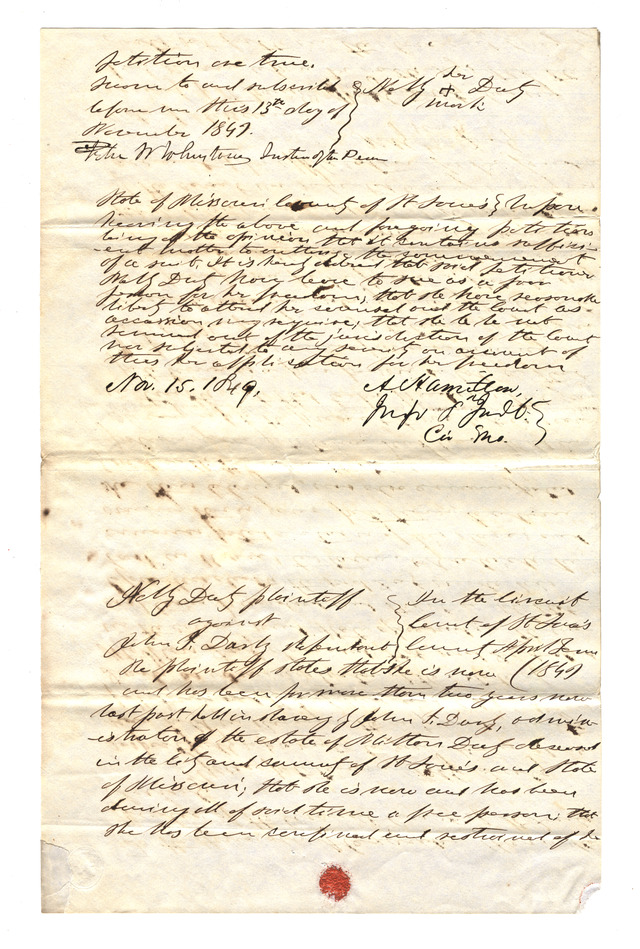 petition are true.
Sworn to and subscribed } Nelly her Duty
before me this 13th day of } X mark
November 1849.
Peter W Johnstone Justice of the Peace
State of Missouri County of St Louis } Upon
hearing the above and foregoing petition
being of the opinion that it contains suffici-
ent matter to authorise the commencement
of a suit. It is hereby ordered that said petitioner
Nelly Duty have leave to sue as a poor
person for her freedom; that she have reasonable
liberty to attend her counsel and the court as
occasion may require; that she be not
removed out of the jurisdiction of the Court
nor subjected to any severity on account of
this her application for her freedom
Nov. 15. 1849,
A Hamilton
Judge 8 Jud Ct. }
Cir Mo.
Nelly Duty plaintiff } In the Circuit
against } Court of St Louis
John F. Darby defendant } County April Term
the plaintiff states that she is now (1849
and has been for more than two years now
last past held in slavery by John F. Darby, admin-
istrator of the estate of Milton Duty deceased
in the City and County of St Louis and State
of Missouri; that she is now and has been
during all of said time a free person; that
she has been confined and restrained of